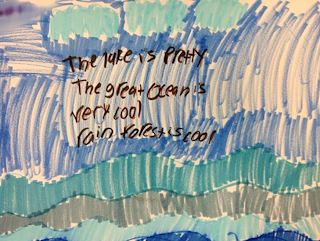 The lake is Pretty
The great Ocean is
very cool
rain forest is cool